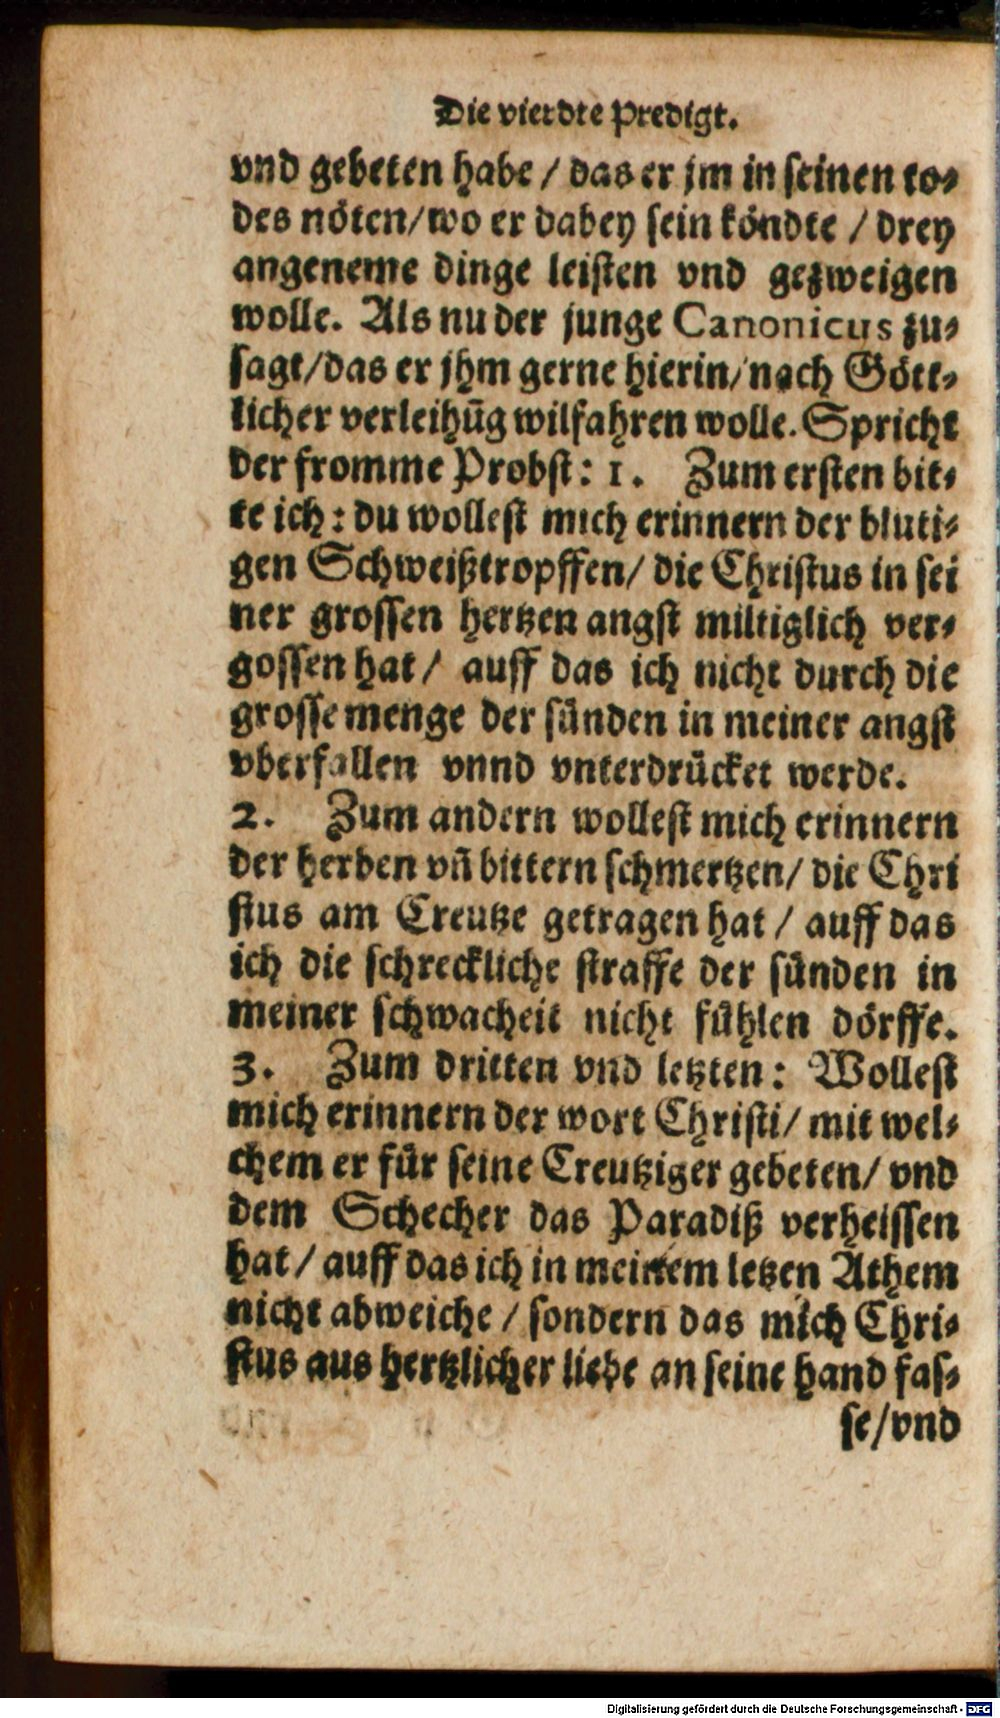 Die vierdte Predigt.
vnd gebeten habe / das er jm in seinen to-
des nöten/wo er dabey sein köndte / drey
angeneme dinge leisten vnd gezweigen
wolle. Als nu der junge Canonicus zu-
sagt/das er jhm gerne hierin/nach Gött-
licher verleihūg wilfahren wolle. Spricht
der fromme Probst: 1. Zum ersten bit-
te ich: du wollest mich erinnern der bluti-
gen Schweißtropffen/ die Christus in sei
ner grossen hertzen angst miltiglich ver-
gossen hat/ auff das ich nicht durch die
grosse menge der sünden in meiner angst
vberfallen vnnd vnterdrücket werde.
2. Zum andern wollest mich erinnern
der herben vn̄ bittern schmertzen/ die Chri
stus am Creutze getragen hat / auff das
ich die schreckliche straffe der sünden in
meiner schwacheit nicht fühlen dörffe.
3. Zum dritten vnd letzten: Wollest
mich erinnern der wort Christi/ mit wel-
chem er für seine Creutziger gebeten/ vnd
dem Schecher das Paradiß verheissen
hat/ auff das ich in meinem letzen Athem
nicht abweiche / sondern das mich Chri-
stus aus hertzlicher liebe an seine hand fas-
se/vnd
Digitalisierung gefördert durch die Deutsche Forschungsgemeinschaft - DFG